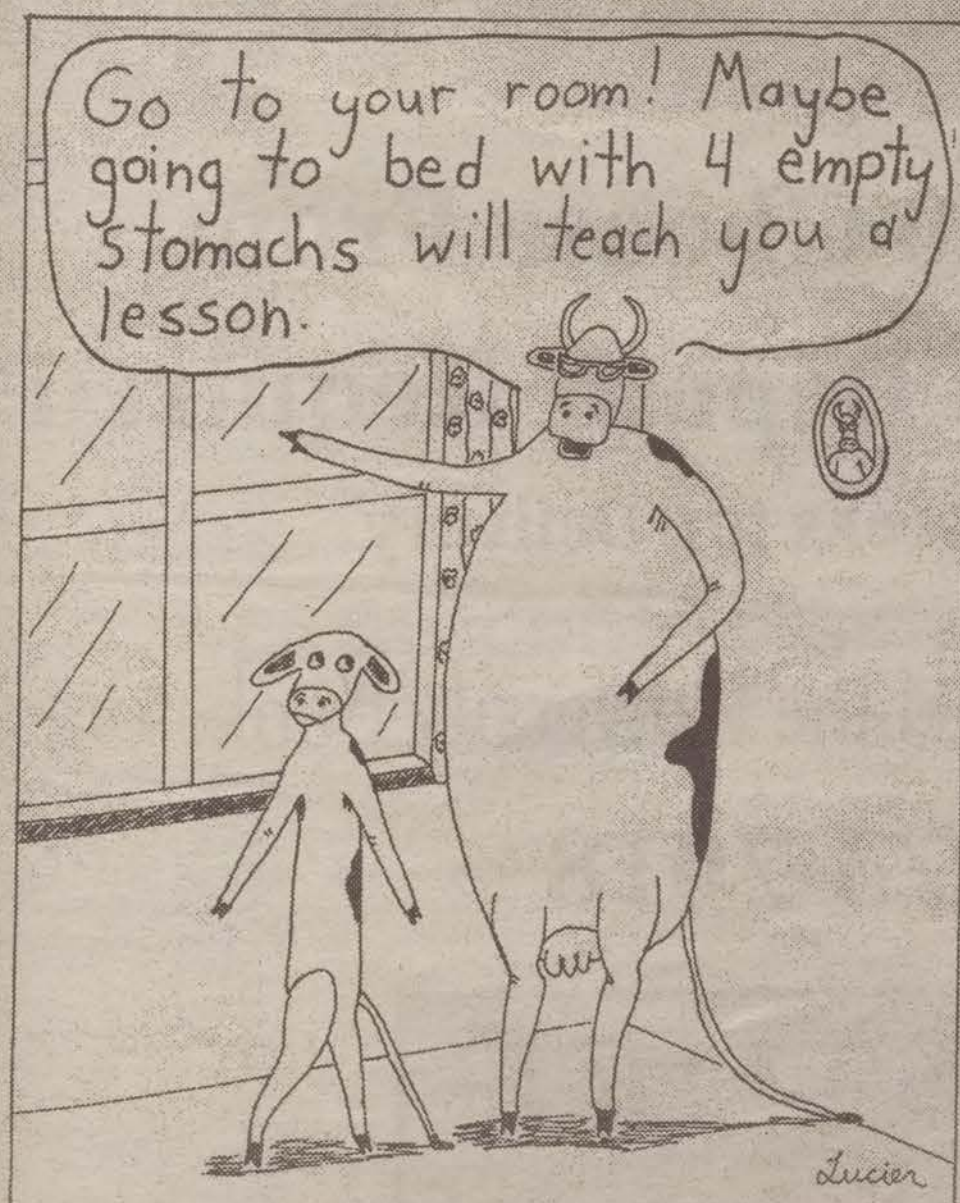 Go to your room! Maybe
going to bed with 4 empty
stomachs will teach you a
lesson.
Lucier